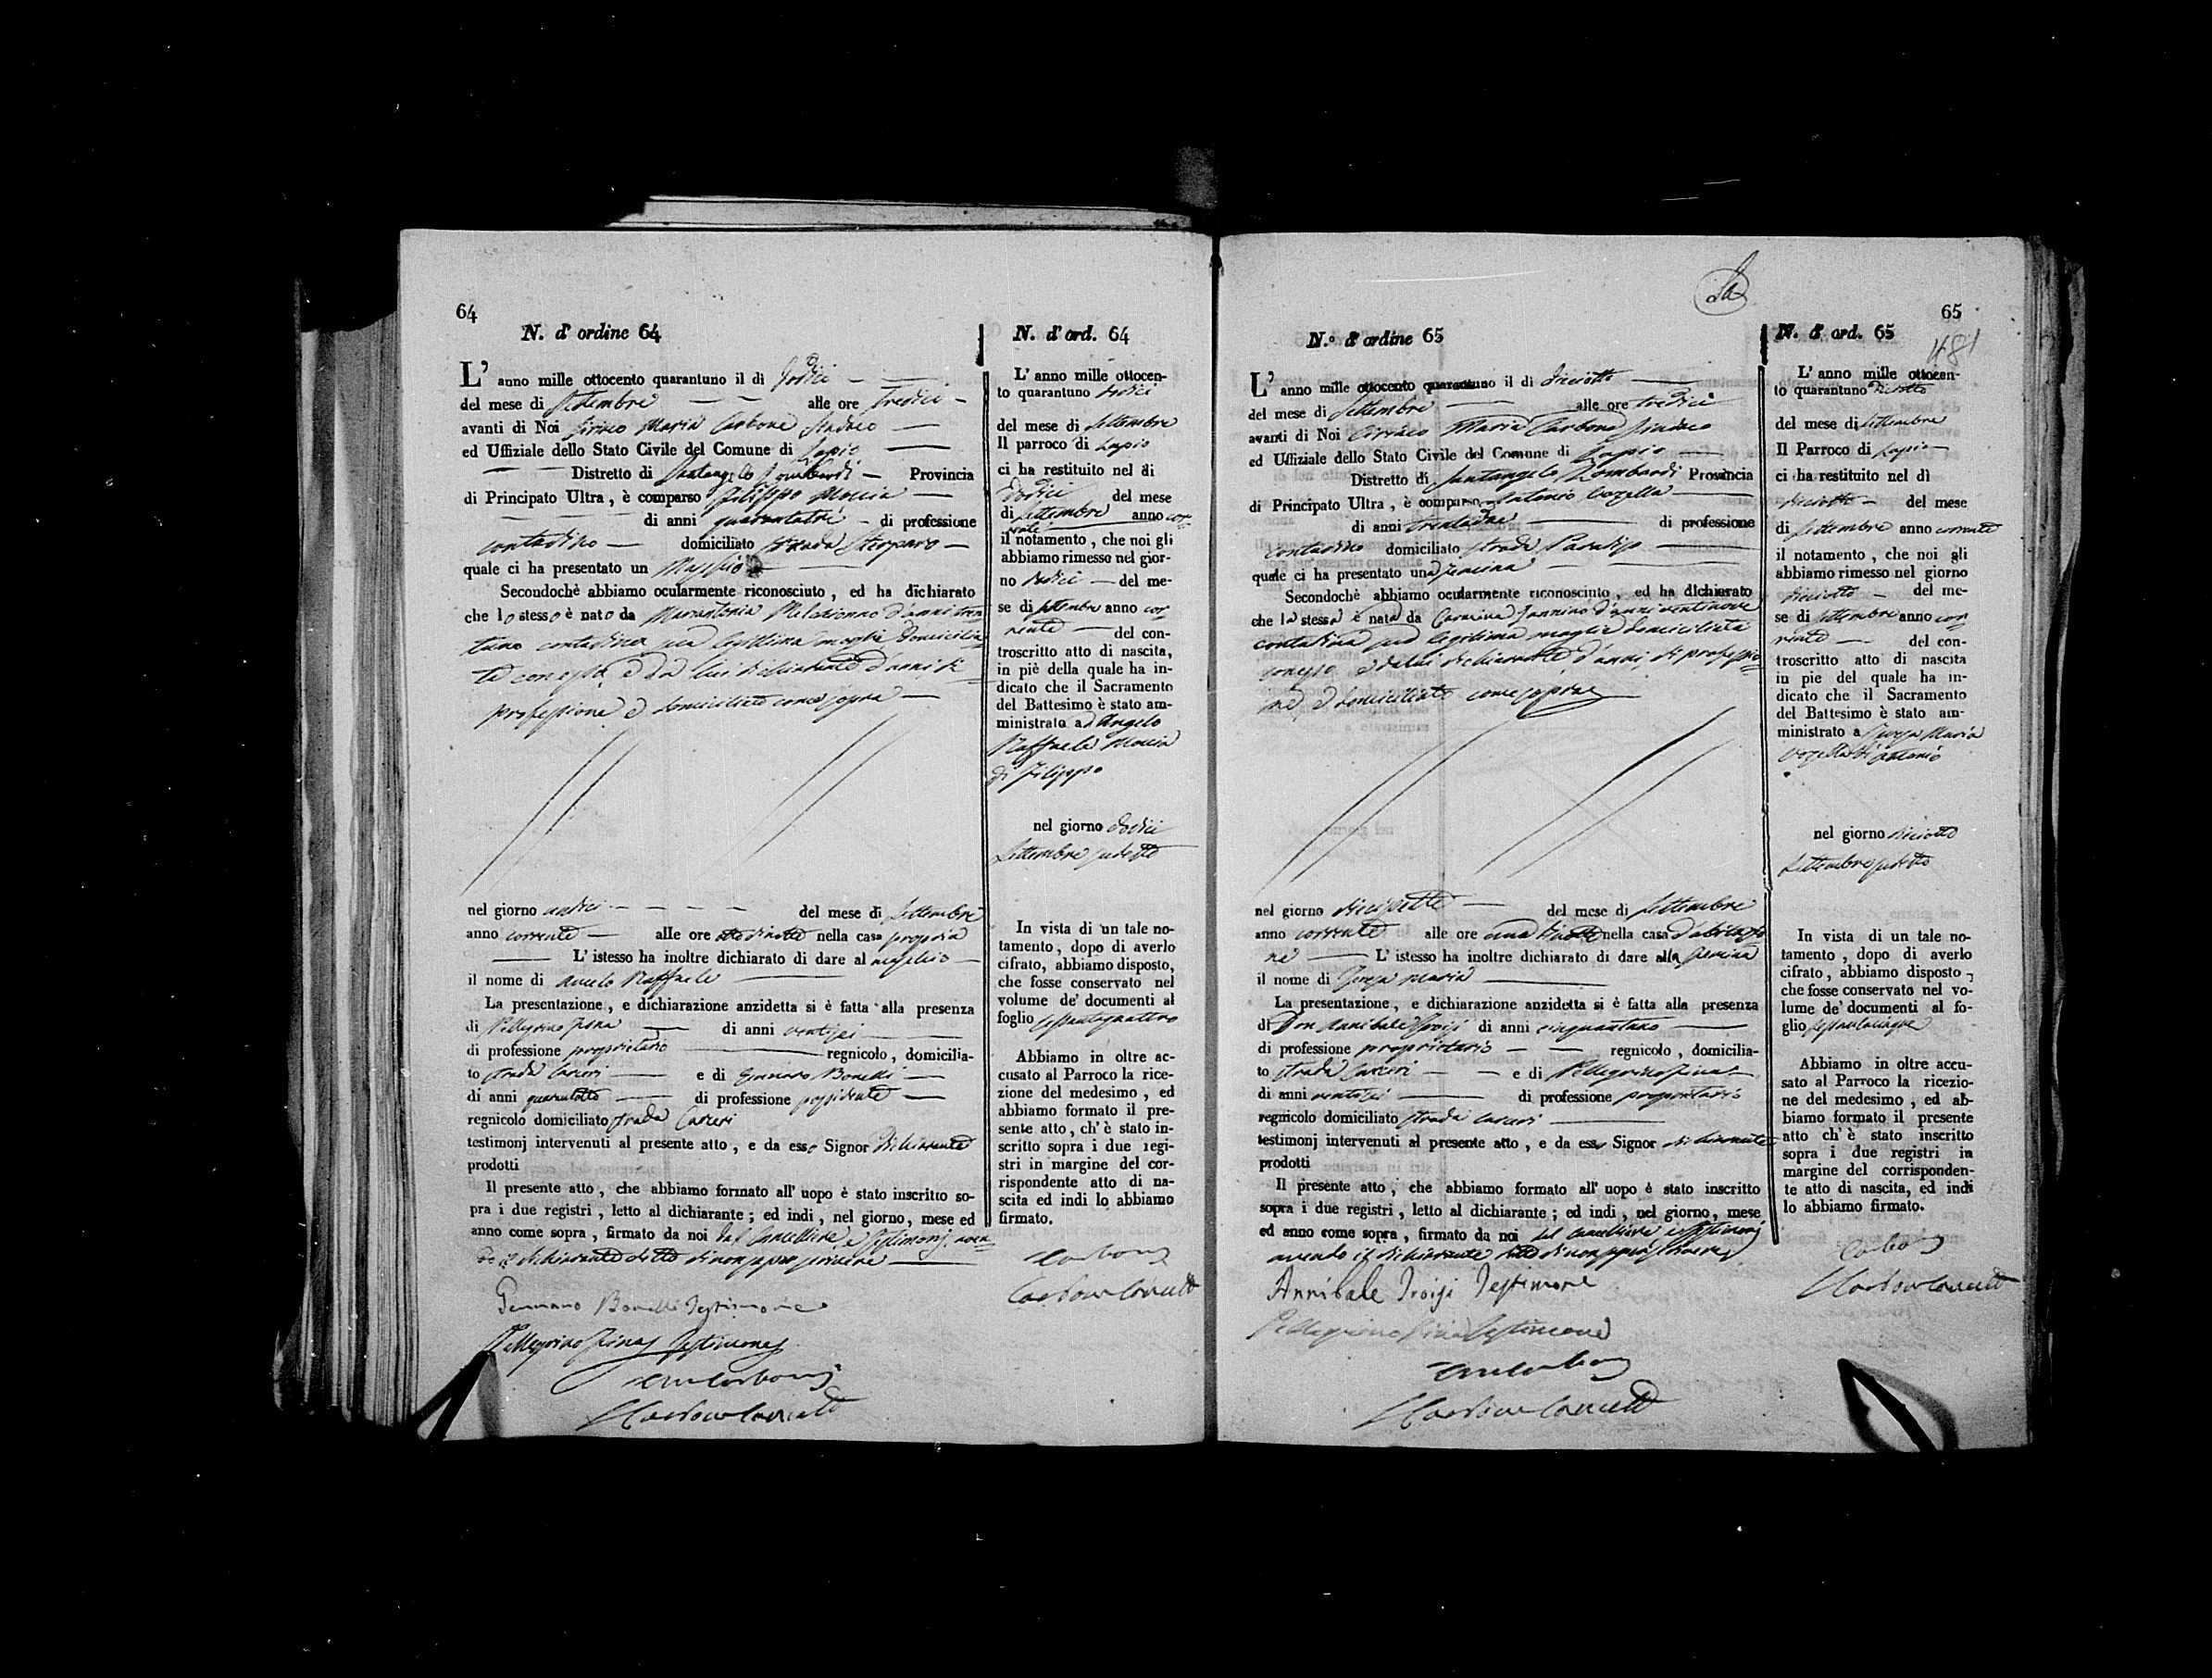 64
N. d' ordine 64
L' anno mille ottocento quarantuno il di dodici
del mese di Settembre alle ore tredici
avanti di Noi Ciriaco Maria Carbone Sindaco
ed Uffiziale dello Stato Civile del Comune di Lapio
Distretto di Santangelo Lombardi Provincia
di Principato Ultra, è comparso Filippo Moccia
di anni quarantatrè di professione
contadino domiciliato strada
quale ci ha presentato un Maschio
Secondochè abbiamo ocularmente riconosciuto, ed ha dichiarato
che lo stesso è nato da Mariantonia d'anni tren
tuno contadina sua legittima moglie domicilia
ta con esso, e da lui dichiarante d'anni di
professione e domiciliato come sopra
nel giorno undici del mese di Settembre
anno corrente alle ore otto di notte nella casa propria
L' istesso ha inoltre dichiarato di dare al maschio
il nome di Angelo Raffaele
La presentazione, e dichiarazione anzidetta si è fatta alla presenza
di Pellegrino di anni ventisei
di professione proprietario regnicolo, domicilia-
to strada Carceri e di Gennaro Bonelli
di anni quarantotto di professione possidente
regnicolo domiciliato strada Carceri
testimonj intervenuti al presente atto, e da esso Signor Dichiarante
prodotti
Il presente atto, che abbiamo formato all' uopo è stato inscritto so-
pra i due registri, letto al dichiarante; ed indi, nel giorno, mese ed
anno come sopra, firmato da noi dal Cancelliere e testimonj, aven
do il dichiarante detto di non saper scrivere
Gennaro Bonelli Testimone
Pellegrino Testimone
Carbone
Carbone
N. d' ord. 64
L' anno mille ottocen-
to quarantuno dodici
del mese di Settembre
Il parroco di Lapio
ci ha restituito nel di
dodici del mese
di Settembre anno cor
rente
il notamento, che noi gli
abbiamo rimesso nel gior-
no dodici del me-
se di settembre anno cor
rente del con-
troscritto atto di nascita,
in piè della quale ha in-
dicato che il Sacramento
del Battesimo è stato am-
ministrato ad Angelo
Raffaele Moccia
di Filippo
nel giorno dodici
Settembre sudetto
In vista di un tale no-
tamento, dopo di averlo
cifrato, abbiamo disposto,
che fosse conservato nel
volume de' documenti al
foglio sessantaquattro
Abbiamo in oltre ac-
cusato al Parroco la rice-
zione del medesimo, ed
abbiamo formato il pre-
sente atto, ch' è stato in-
scritto sopra i due regi-
stri in margine del cor-
rispondente atto di na-
scita ed indi lo abbiamo
firmato.
Carbone
Carbone
65
481
N.o d' ordine 65
L' anno mille ottocento quarantuno il di diciotto
del mese di Settembre alle ore tredici
avanti di Noi Ciriaco Maria Carbone Sindaco
ed Uffiziale dello Stato Civile del Comune di Lapio
Distretto di Santangelo Lombardi Provincia
di Principato Ultra, è comparso Antonio Vozella
di anni trentadue di professione
contadino domiciliato strada Paradiso
quale ci ha presentato una femina
Secondochè abbiamo ocularmente riconosciuto, ed ha dichiarato
che la stessa è nata da Carmina Jannino d'anni ventinove
contadina sua legittima moglie domiciliata
con esso, e da lui dichiarante d'anni di professio
ne, e domiciliato come sopra
nel giorno diciisette del mese di Settembre
anno corrente alle ore una di notte nella casa d'abitazio
ne L' istesso ha inoltre dichiarato di dare alla femina
il nome di Maria
La presentazione, e dichiarazione anzidetta si è fatta alla presenza
di Don Annibale Troisi di anni cinquantuno
di professione proprietario regnicolo, domicilia-
to strada Carceri e di Pellegrino
di anni ventisei di professione proprietario
regnicolo domiciliato strada Carceri
testimonj intervenuti al presente atto, e da esso Signor dichiarante
prodotti
Il presente atto, che abbiamo formato all' uopo è stato inscritto
sopra i due registri, letto al dichiarante; ed indi, nel giorno, mese
ed anno come sopra, firmato da noi dal Cancelliere e testimonj
avendo il dichiarante detto di non saper scrivere
Annibale Troisi Testimone
Pellegrino Testimone
Carbone
Carbone
N. d' ord. 65
L' anno mille ottocen-
to quarantuno diciotto
del mese di Settembre
Il Parroco di Lapio
ci ha restituito nel dì
diciotto del mese
di Settembre anno corrente
il notamento, che noi gli
abbiamo rimesso nel giorno
diciotto del me-
se di Settembre anno cor
rente del con-
troscritto atto di nascita
in pie del quale ha in-
dicato che il Sacramento
del Battesimo è stato am-
ministrato a Maria
Vozella di Antonio
nel giorno diciotto
Settembre sudetto
In vista di un tale no-
tamento, dopo di averlo
cifrato, abbiamo disposto,
che fosse conservato nel vo-
lume de' documenti al fo-
glio sessantacinque
Abbiamo in oltre accu-
sato al Parroco la ricezio-
ne del medesimo, ed ab-
biamo formato il presente
atto ch' è stato inscritto
sopra i due registri in
margine del corrisponden-
te atto di nascita, ed indi
lo abbiamo firmato.
Carbone
Carbone